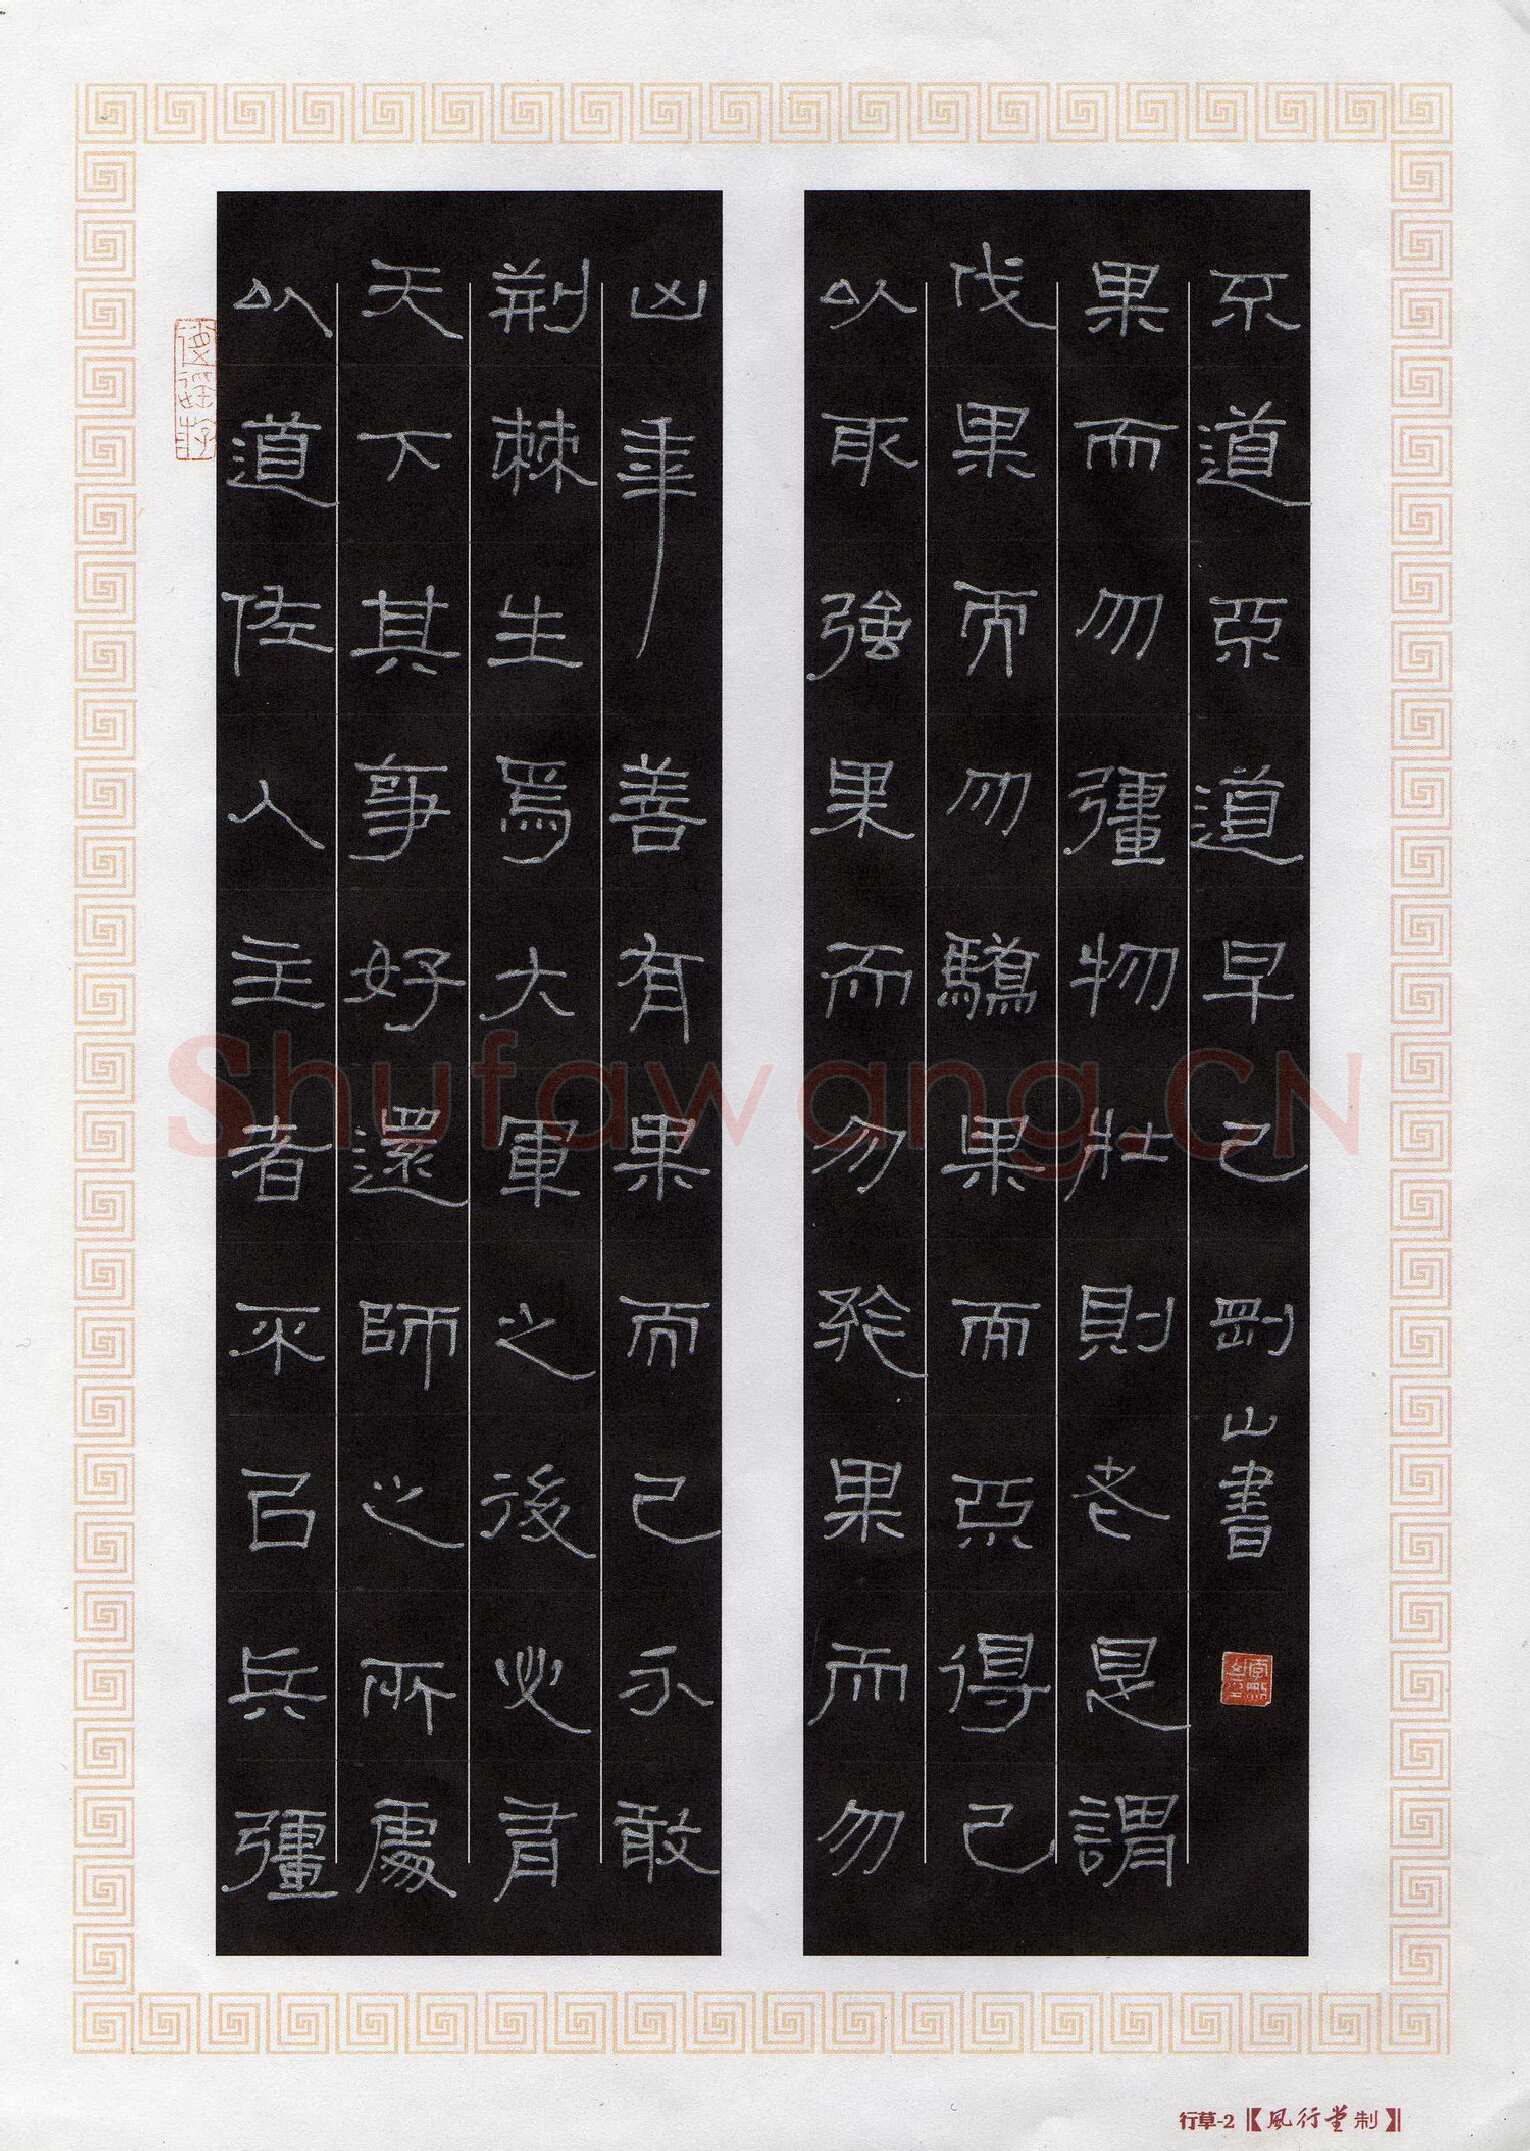 以道佐人主者不以兵彊
天下其事好還師之所處
荆棘生焉大軍之後必有
凶年善有果而已不敢
以取強果而勿矜果而勿
伐果而勿驕果而不得已
果而勿彊物壯則老是謂
不道不道早已 剛山書
Shufawang.CN
行草-2【風行堂制】